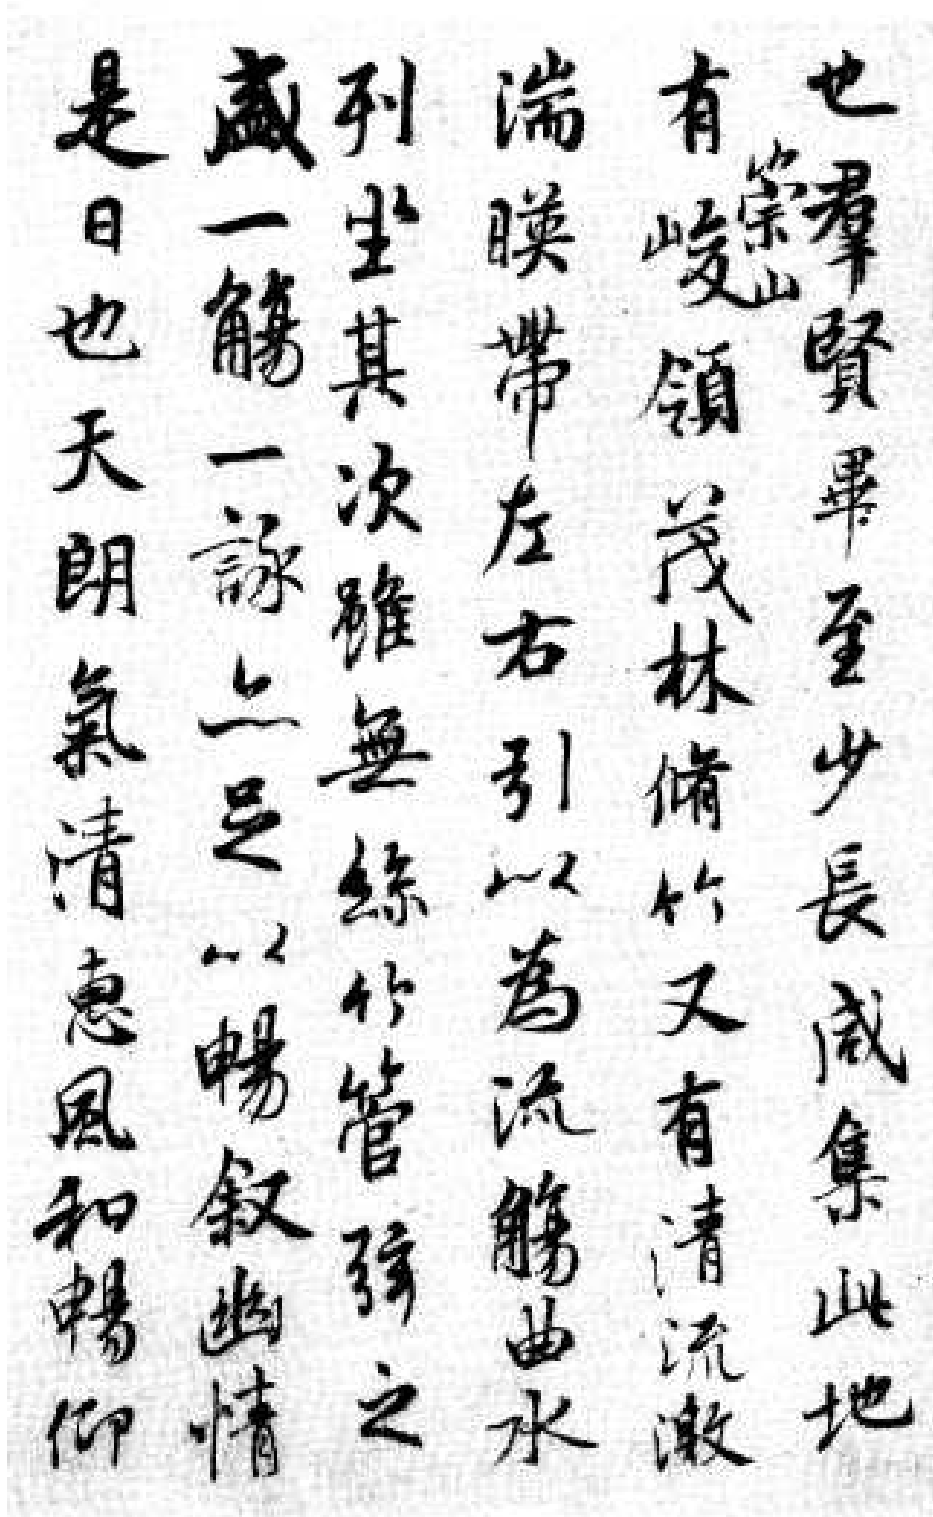 也羣賢畢至少長咸集此地
有崇山峻領茂林脩竹又有清流激
湍暎帶左右引以為流觴曲水
列坐其次雖無絲竹管弦之
盛一觴一詠亦足以暢叙幽情
是日也天朗氣清惠風和暢仰